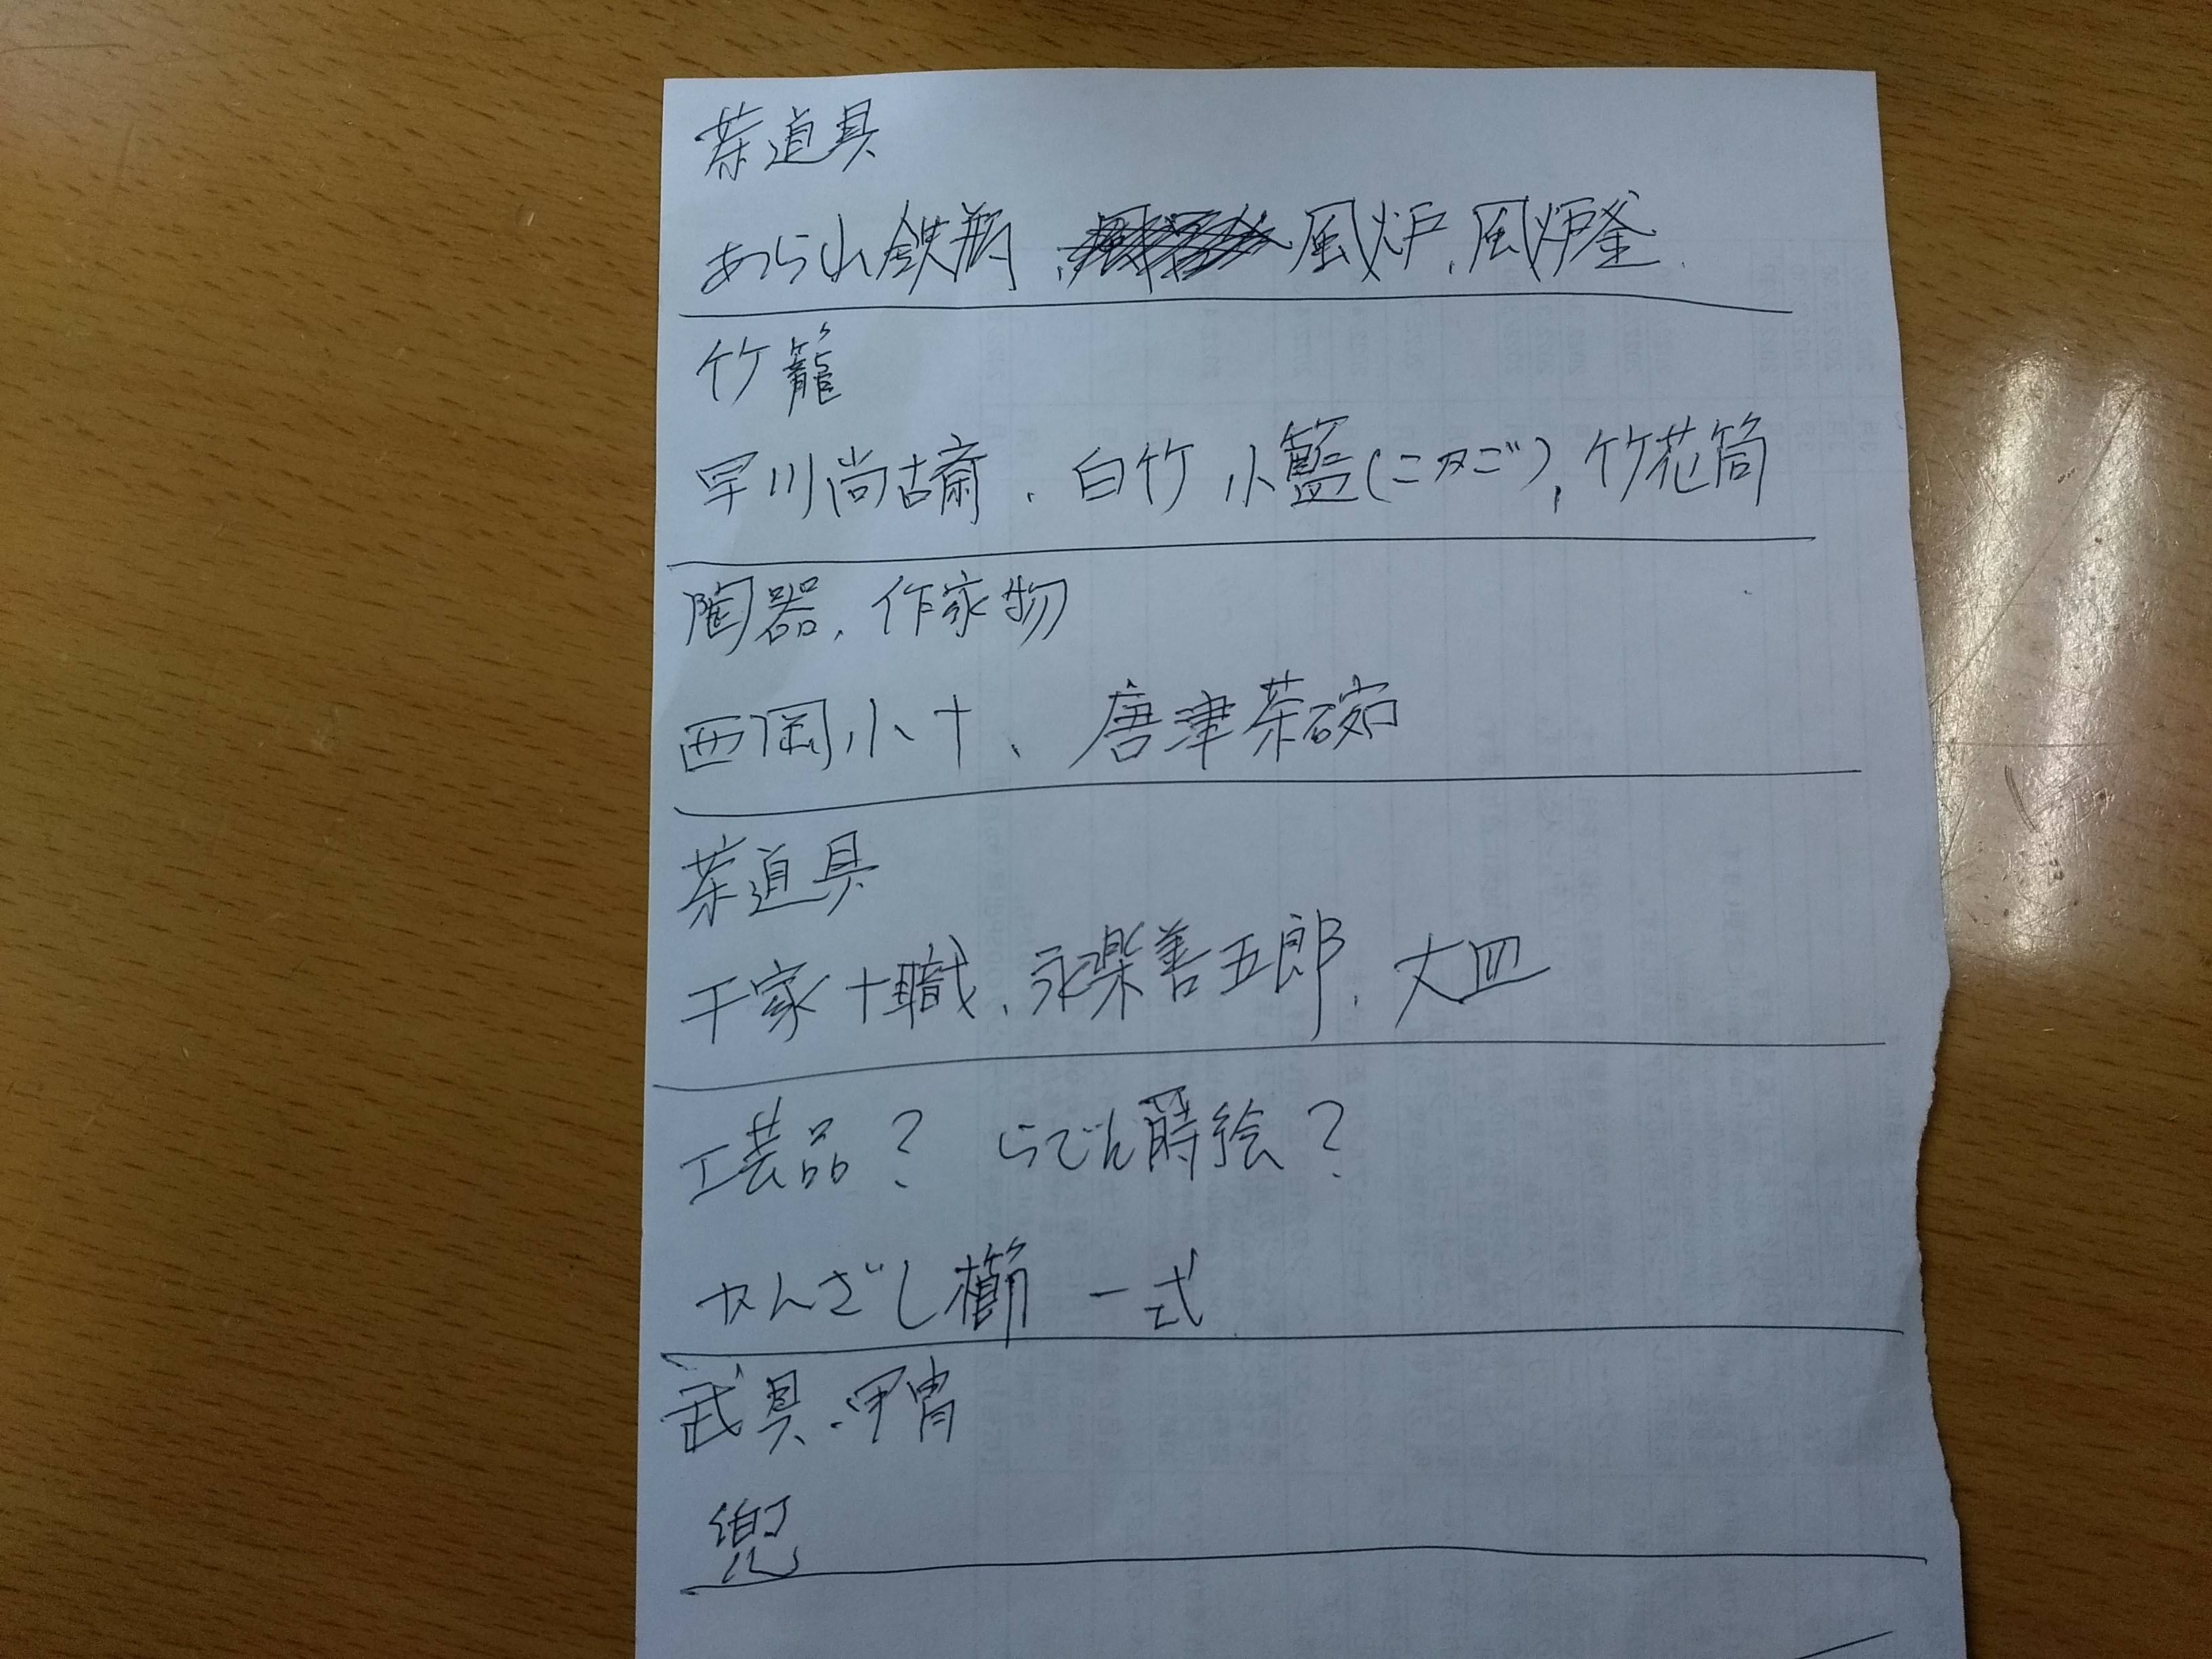 茶道具
あられ鉄瓶、風炉、風炉釜
竹籠
早川尚古齋、白竹 小籃(こかご)、竹花筒
陶器、作家物
西岡小十、唐津茶碗
茶道具
千家十職、永楽善五郎、大皿
工芸品? らでん蒔絵?
かんざし櫛 一式
武具、甲冑
兜